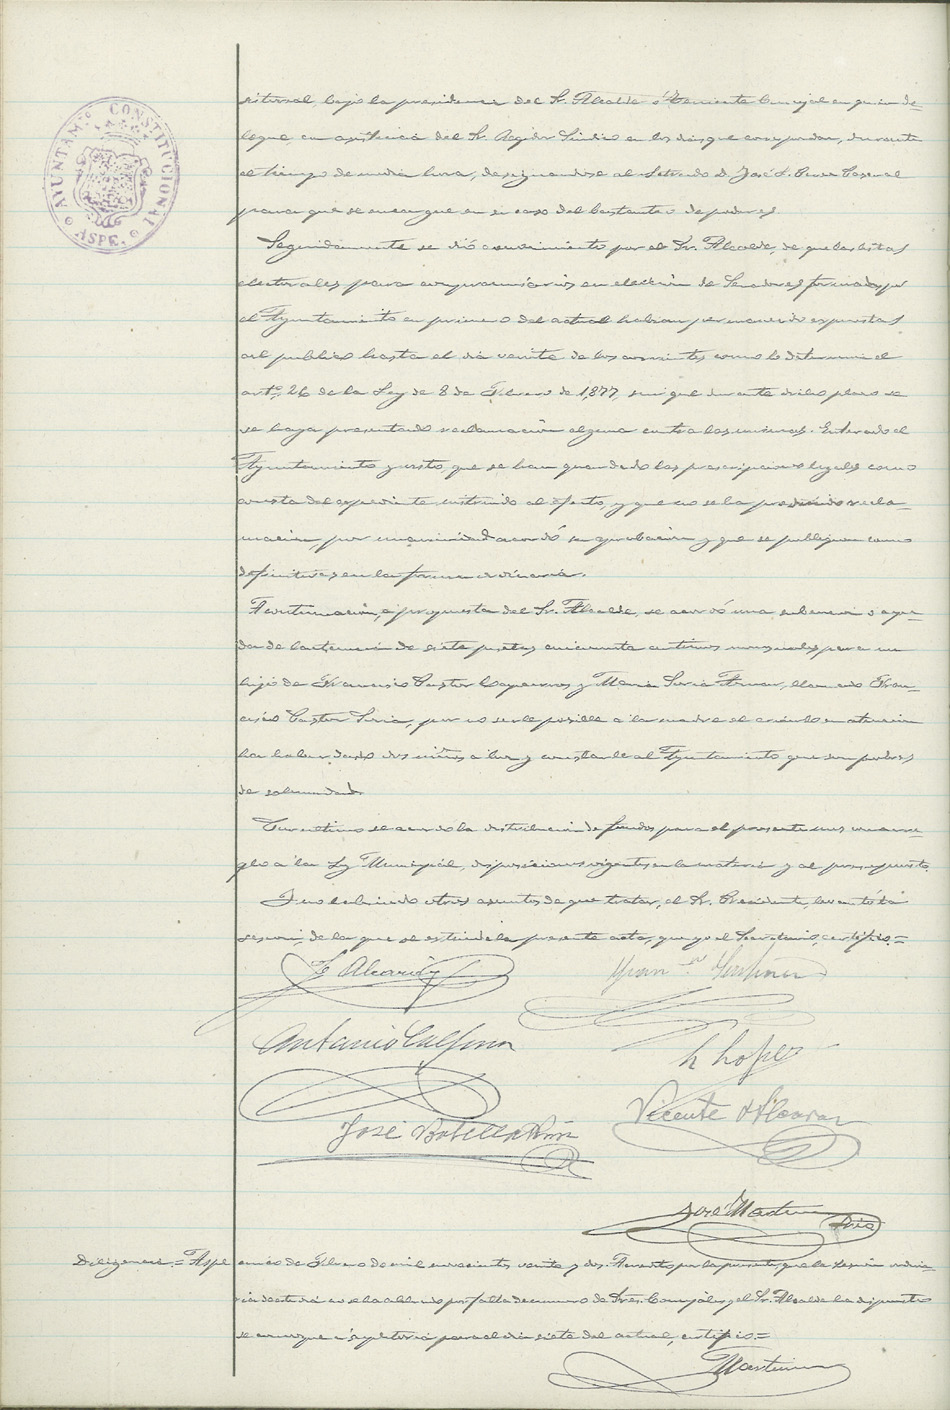 AYUNTAM.TO CONSTITUCIONAL
ASPE.
bajo la presidencia del Sr. Alcalde ó Teniente Concejal en quien de=
legue, con asistencia del Sr. Regidor Síndico en los dias que correspondan, durante
el tiempo de media hora, designandose al Letrado D. José L. Pascual
para que se encargue en su caso del bastanteo de poderes.
Seguidamente se dió conocimiento por el Sr. Alcalde, de que las listas
electorales para compromisarios en eleccion de Senadores formadas por
el Ayuntamiento en primero del actual habian permanecido expuestas
al publico hasta el dia veinte de los corrientes como lo determina el
artº. 26 de la Ley de 8 de Febrero de 1,877, sin que durante dicho plazo se
se haya presentado reclamación alguna contra las mismas. Enterado el
Ayuntamiento y visto, que se han guardado las prescripciones legales como
consta del expediente instruido al efecto, y que no se ha producido recla-
macion, por unanimidad acordó su aprobación y que se publiquen como
definitivas en la forma ordinaria.
Acontinuación, á propuesta del Sr. Alcalde, se acordó una subvencion o ayu-
da de lactancia de siete pesetas cincuenta centimos mensuales para un
hijo de Francisco Pastor y Maria Soria llamado Fran-
cisco Pastor Soria, por no serle posible a la madre el criarlo en atencion
ha haber dado dos niños a luz y constarle al Ayuntamiento que son pobres
de solemnidad.
Por ultimo se acordó la distribucion de fondos para el presente mes con arre-
glo a la Ley Municipal, disposiciones vigentes en la materia y al presupuesto.
Y no habiendo otros asuntos de que tratar, el Sr. Presidente, levantó la
sesion, de la que se extiende la presente acta, que yo el Secretario, certifico.=
Antonio Calpena
h Lopez
José Botella
Vicente Alcaraz
José Martinez
Diligencia.= Aspe cinco de Febrero de mil novecientos veinte y dos. Acredito por la presente que la sesion ordina-
ria de este dia no se ha celebrado por falta de numero de Sres. Concejales y el Sr. Alcalde ha dispuesto
se convoque á supletoria para el dia siete del actual, certifico=
Martinez